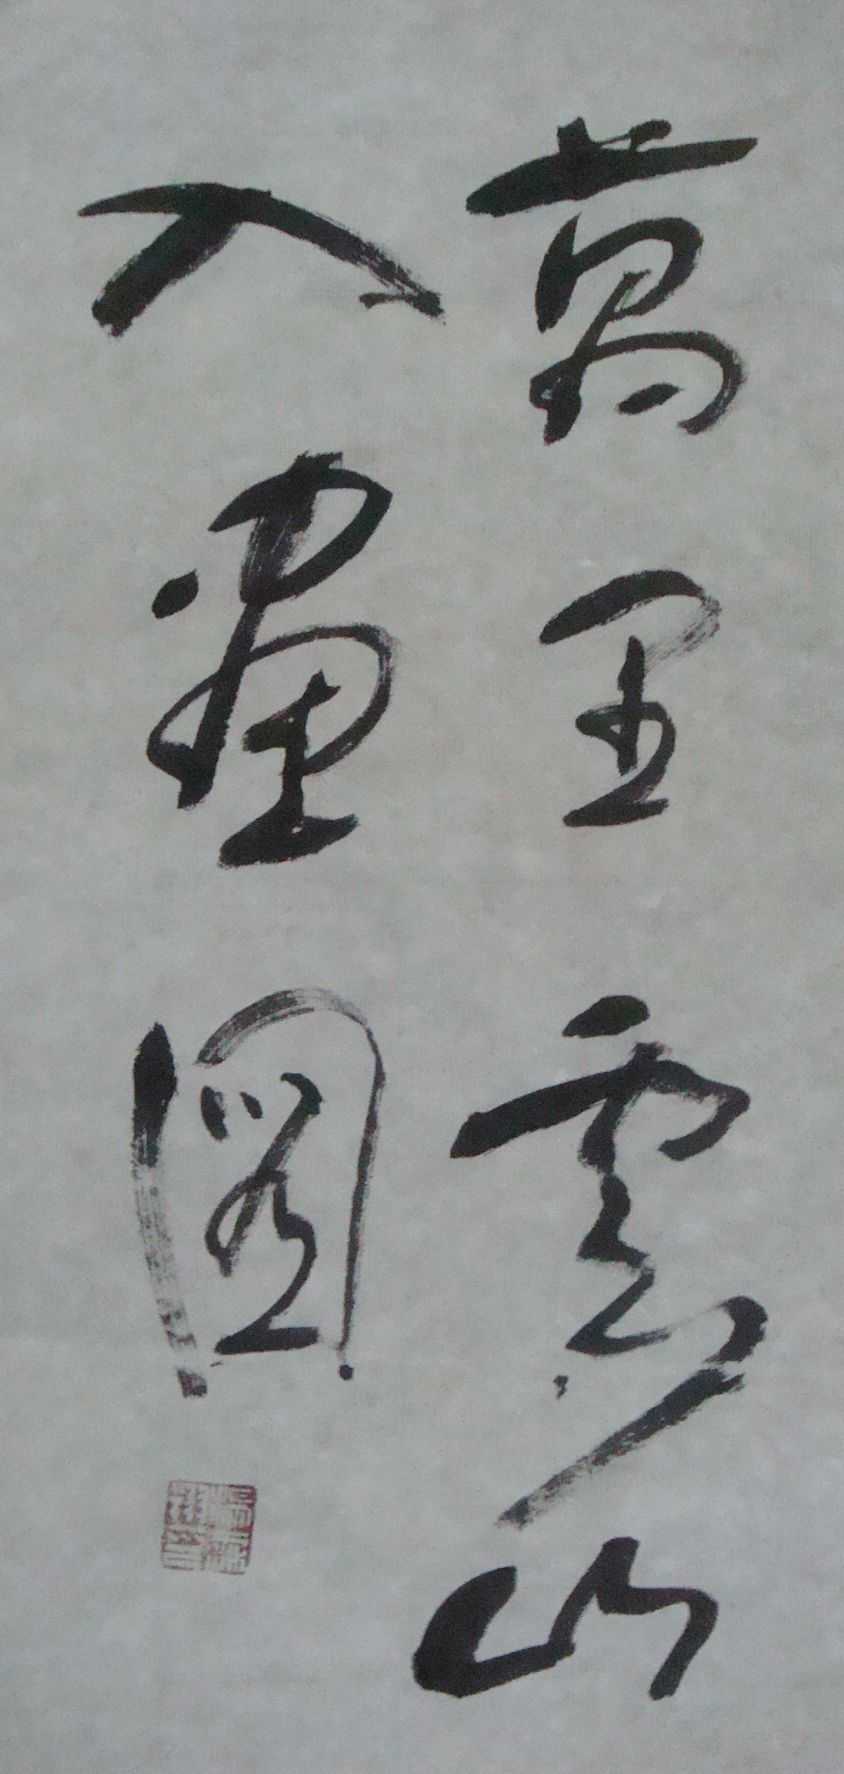 萬里雲山
入畫圖